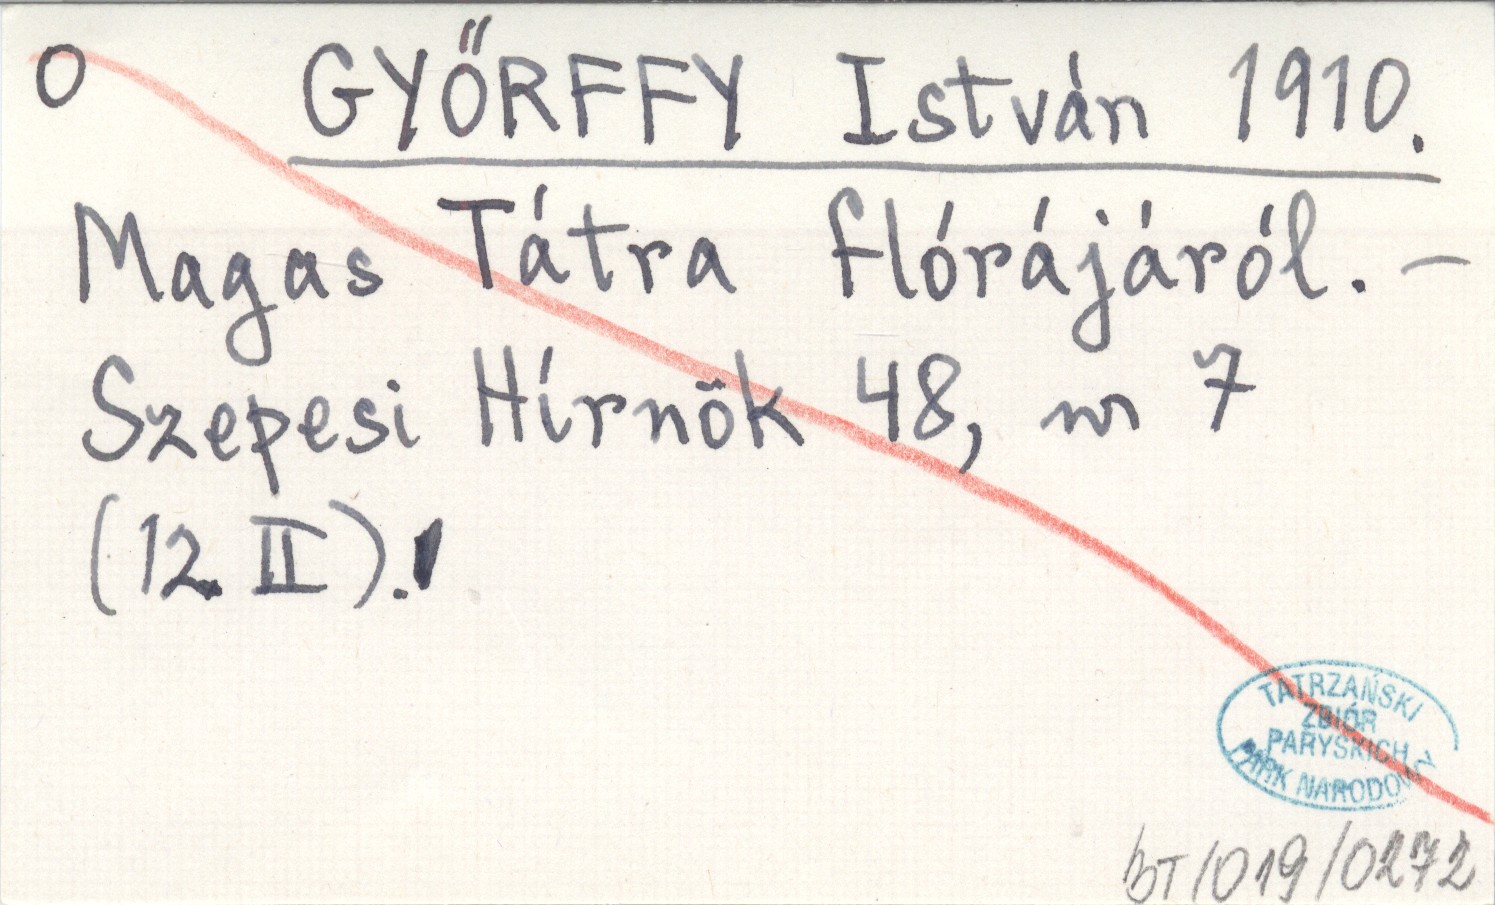 O GYŐRFFY István 1910.
Magas Tátra flórájáról. –
Szepesi Hírnök 48, nr 7
(12. II).
TATRZAŃSKI
ZBIÓR
PARYSKICH
PARK NARODOWY
BT/019/0272